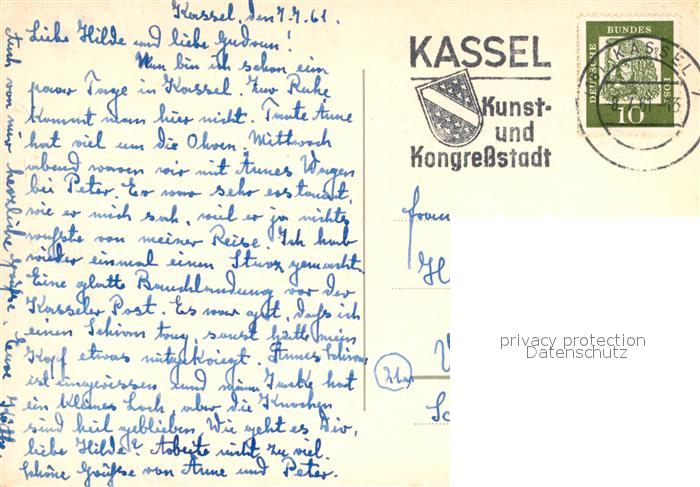 Kassel, den 7.7.61.
Liebe Hilde und liebe Gudrun!
Nun bin ich schon ein
paar Tage in Kassel. Zur Ruhe
kommt man hier nicht. Tante Anne
hat viel um die Ohren. Mittwoch
abend waren wir mit Annes Wagen
bei Peter. Er war sehr erstaunt,
wie er mich sah, weil er ja nichts
wußte von meiner Reise. Ich hab
wieder einmal einen Sturz gemacht.
Eine glatte Bauchlandung vor der
Kasseler Post. Es war gut, daß ich
einen Schirm trug, sonst hätte mein
Kopf etwas mitgekriegt. Annes Schirm
ist eingerissen und meine Jacke hat
ein kleines Loch, aber die Knochen
sind heil geblieben. Wie geht es Dir,
liebe Hilde? Arbeite nicht zu viel.
Schöne Grüße von Anne und Peter.
Auch von mir herzliche Grüße. Eure
KASSEL
Kunst-
und
Kongreßstadt
DEUTSCHE BUNDESPOST
10
KASSEL
61
Frau
H
privacy protection
Datenschutz